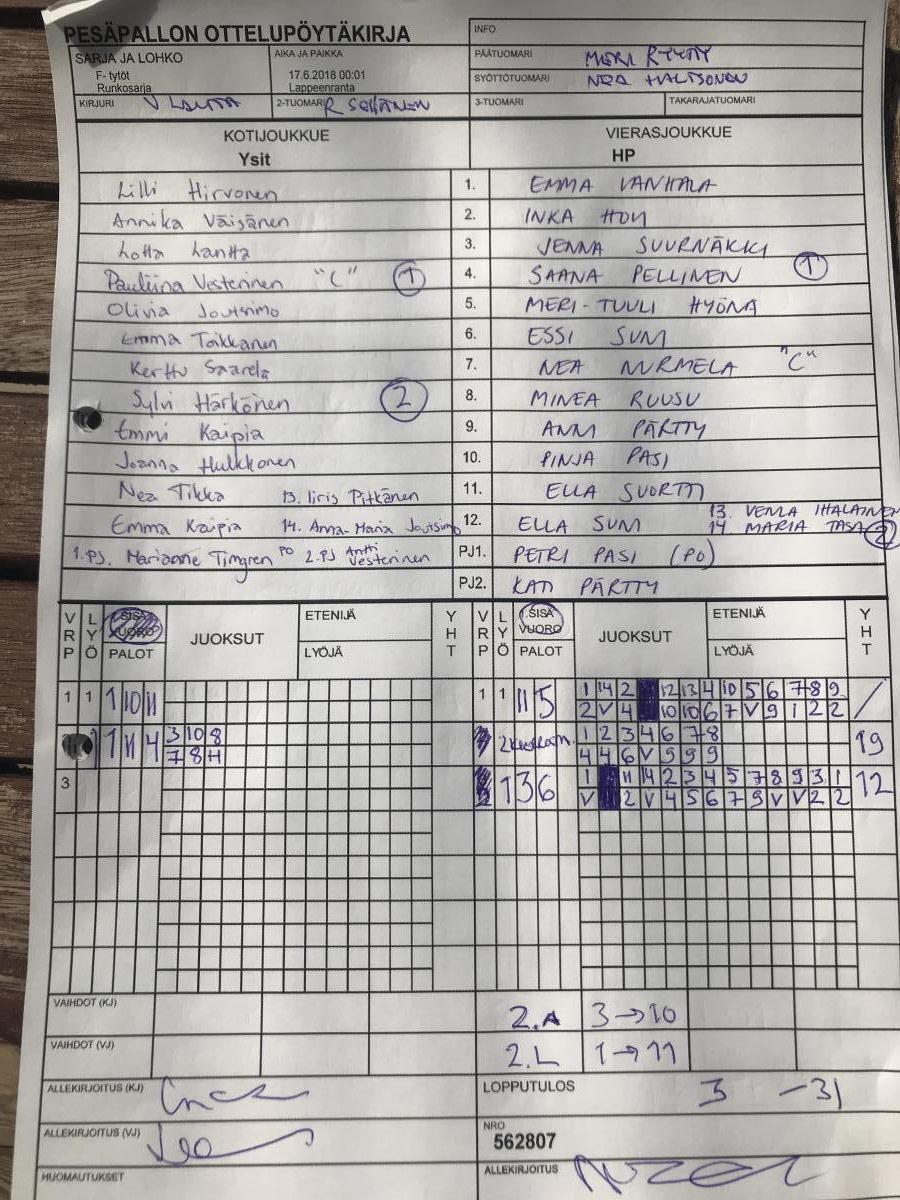 PESÄPALLON OTTELUPÖYTÄKIRJA
INFO
SARJA JA LOHKO
F- tytöt
Runkosarja
AIKA JA PAIKKA
17.6.2018 00:01
Lappeenranta
PÄÄTUOMARI MERI
SYÖTTÖTUOMARI NEA
KIRJURI V
2-TUOMARI R
3-TUOMARI
TAKARAJATUOMARI
KOTIJOUKKUE
Ysit
VIERASJOUKKUE
HP
Lilli Hirvonen 1. EMMA VANHALA
Annika Väisänen 2. INKA
Lotta Lantta 3. JENNA SUURNÄKKI
Pauliina Vesterinen "C" 1 4. SAANA PELLINEN 1
Olivia Joutsimo 5. MERI-TUULI HYÖNÄ
Emma Taikkanen 6. ESSI SUNI
Kerttu Saarela 7. NEA NURMELA "C"
Sylvi Härkönen 2 8. MINEA RUUSU
Emmi Kaipia 9. ANNI PÄRTTY
Joanna Hulkkonen 10. PINJA PASI
Nea Tikka 13. Iiris Pitkänen 11. ELLA SUORTTI
13. VENLA IHALAINEN
Emma Kaipia 14. Anna-Maria Joutsimo 12. ELLA SUNI 14. MARIA TASA 2
1.PJ. Marianne Timgren PO 2.PJ Antti Vesterinen PJ1. PETRI PASI (PO)
PJ2. KATI PÄRTTY
VRP LYÖ PALOT JUOKSUT ETENIJÄ LYÖJÄ YHT
VRP LYÖ 1.SISÄ VUORO PALOT JUOKSUT ETENIJÄ LYÖJÄ YHT
1 1 1 10 11 1 1 11 5 1 14 2 12 13 4 10 5 6 7 8 9 /
2 V 4 10 10 6 7 V 9 1 2 2
1 11 4 3 10 8 1 2 3 4 6 7 8 19
7 8 H 4 4 6 V 9 9 9
3 1 3 6 1 11 14 2 3 4 5 7 8 9 3 1 12
V 2 V 4 5 6 7 9 V V 2 2
VAIHDOT (KJ) 2.A 3→10
VAIHDOT (VJ) 2.L 1→11
ALLEKIRJOITUS (KJ)
LOPPUTULOS 3 - 31
ALLEKIRJOITUS (VJ)
NRO
562807
HUOMAUTUKSET
ALLEKIRJOITUS